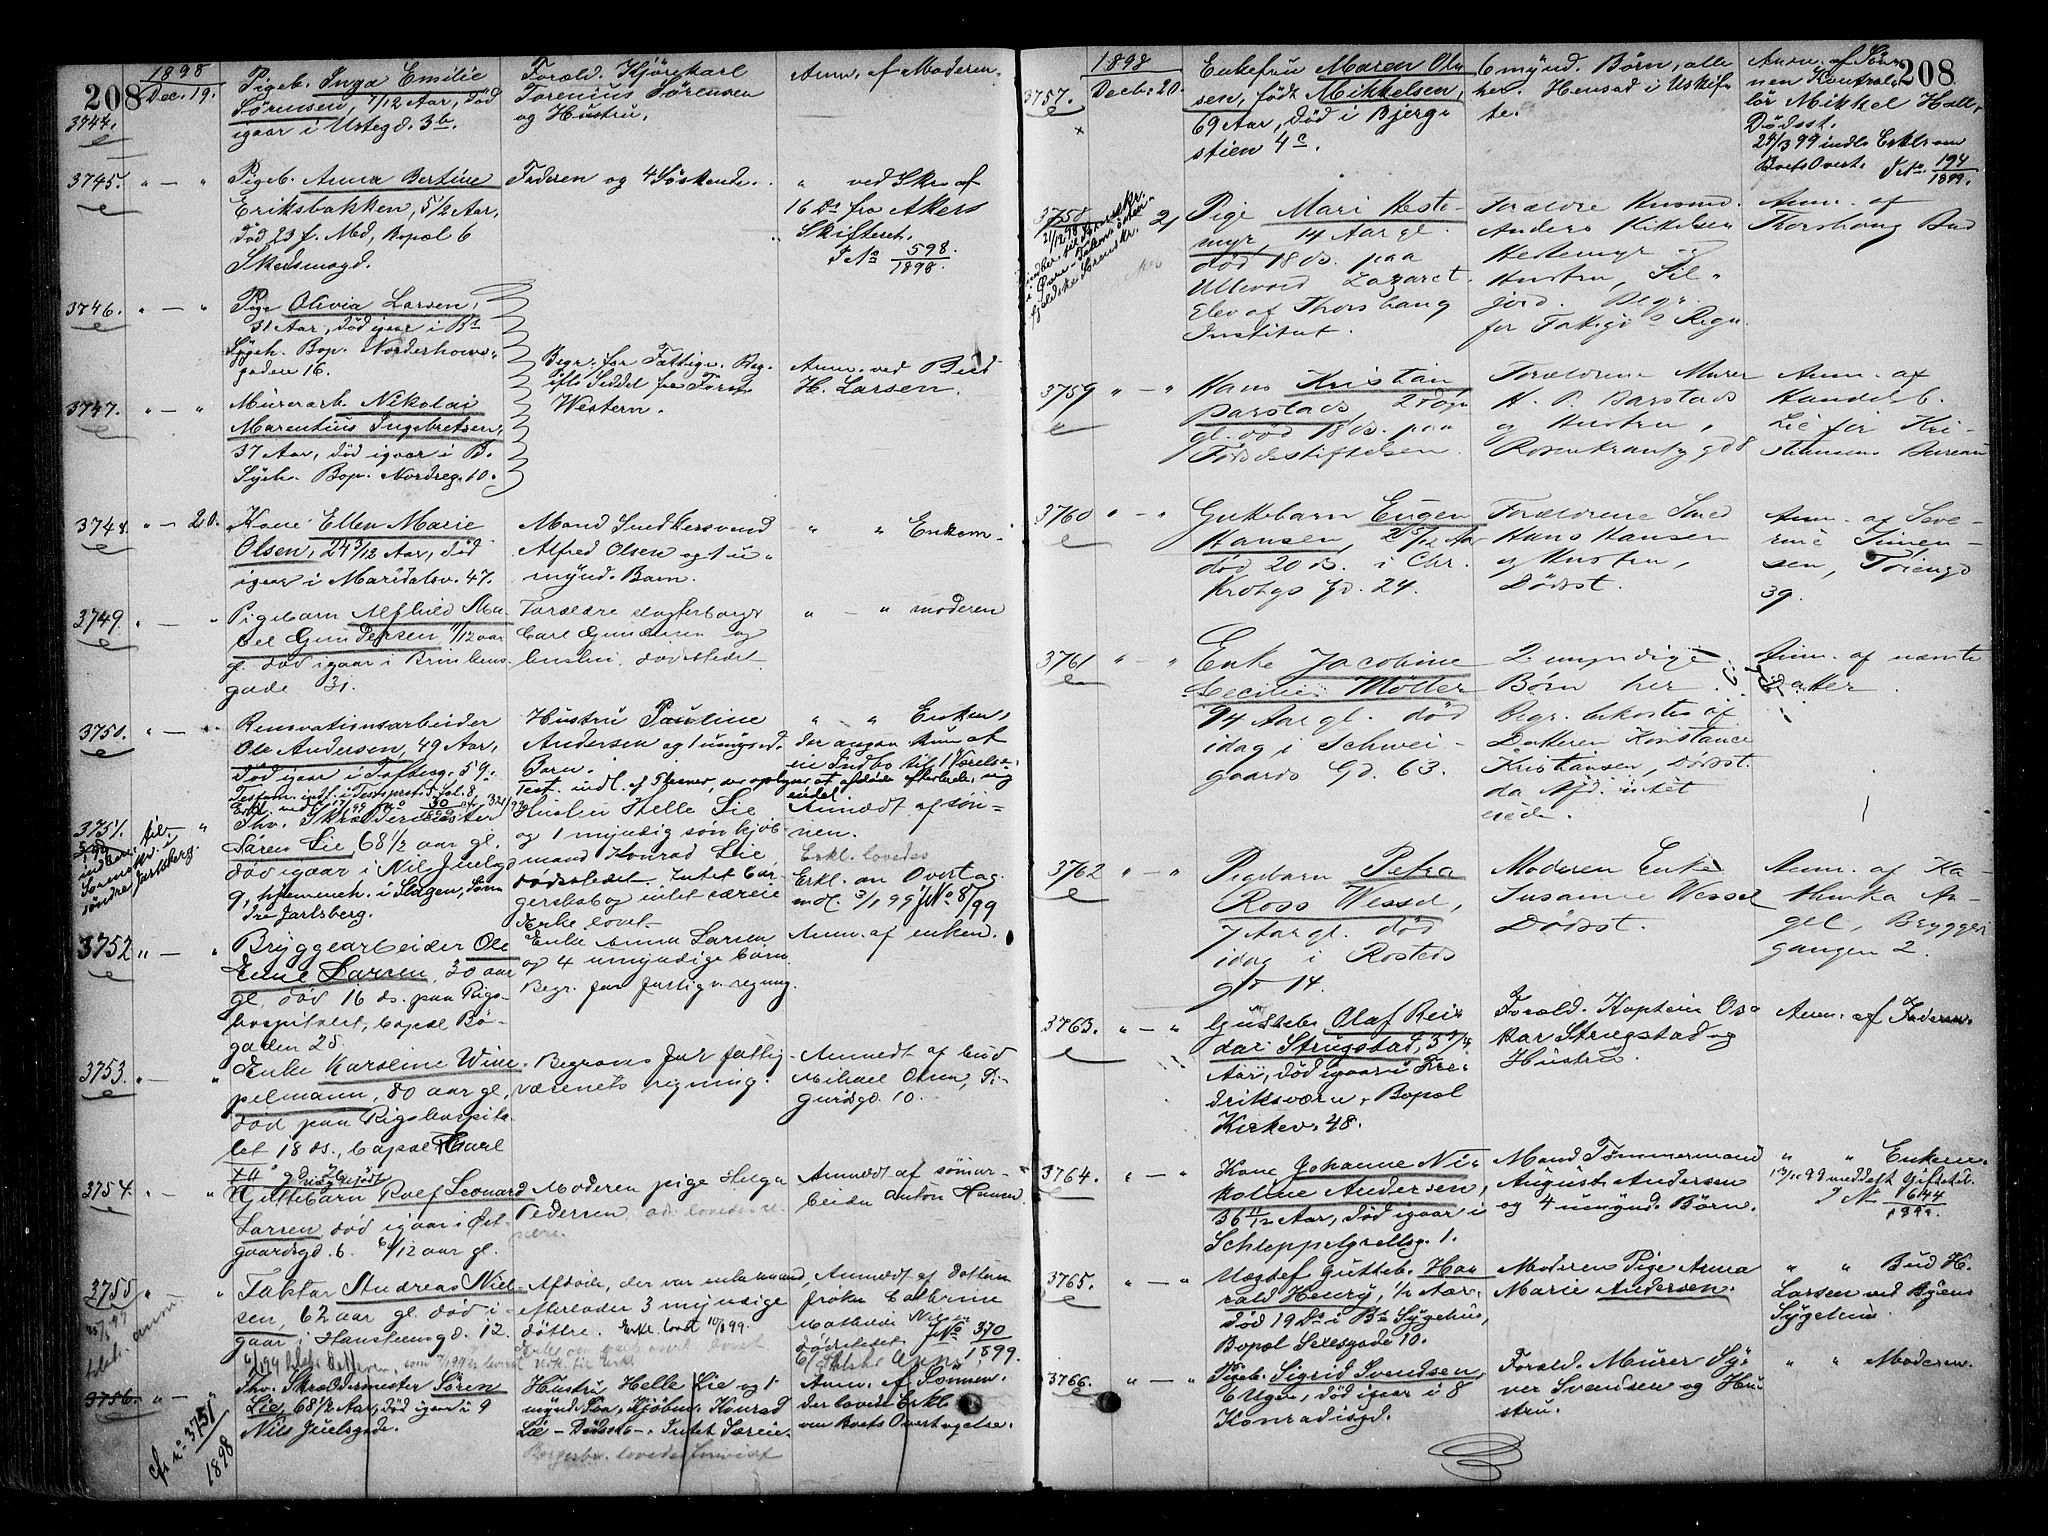 208
1898
Dec. 19.
3744.
Pigeb. Inga Emilie
Sörensen, 7/12 Aar, död
igaar i Urtegd. 3b.
Foræld. Kjörekarl
Torenius Sörensen
og Hustru.
Anm. af Moderen.
3745. " — "
Pigeb. Anna Bertine
Eriksbakken, 5 1/2 Aar,
död 23 f. Md, Bopæl 6
Skedsmogd.
Faderen og 4 Söskende.
" ved Skr. af
16 Ds fra Akers
Skifteret.
J No 598/1898.
3746. " — "
Pige Olivia Larsen,
31 Aar, död igaar i Bs
Sygeh. Bop. Norderhovs-
gaden 16.
Begr. for Fattigv. Reg.
ifls Seddel fra Form.
Western.
Anm. ved Bud
H. Larsen.
3747. " — "
Murerarb. Nikolai
Marentius Ingebretsen,
37 Aar, död igaar i B.
Sygeh. Bop. Nordreg. 10.
3748. " — 20.
Kone Ellen Marie
Olsen, 24 3/12 Aar, död
igaar i Maridalsv. 47.
Mand Snedkersvend
Alfred Olsen og 1 u-
mynd. Barn.
" " Enkem.
3749. " — "
Pigebarn Alfhild Ma-
bel Gundersen 11/12 aar
gl. död igaar i Brinkens
gade 31.
Forældre slagterborgr
Carl Gundersen og
hustru, dödsstedet
" — " moderen
3750. " — "
Renovationsarbeider
Ole Andersen, 49 Aar,
död igaar i Toftesg. 59.
Hustru Pauline
Andersen og 1 umynd.
Barn.
" " Enken,
3751.
Thv. Skræddermester
Sören Lie, 68 1/2 aar gl.
död igaar i Nils Juelsgd
9, hjemmeh. i Slagen, Sön-
dre Jarlsberg.
Hustru Helle Lie
og 1 myndig sön kjöb-
mand Konrad Lie,
dödsstedet. Intet bor-
gerskab og intet særeie
Anmeldt af søn-
nen.
Erkl. lovedes
Erkl. om Overtag.
indl. 3/1 99 J No 8/99
3752 " — "
Bryggearbeider Ole
Emil Larsen, 30 aar
gl. död 16 ds. paa Rigs-
hospitalet, bopæl Bö-
gaden 25.
Enke Anna Larsen
og 4 umyndige børn.
Begr. for fattigv. regning.
Anm. af enken.
3753. " — "
Enke Karoline Wim-
pelmann, 80 aar gl,
död paa Rigshospita-
let 18 ds., bopæl Carl
XII's gd.
Begraves for fattig-
væsenets regning.
Anmeldt af bud
Mikael Olsen, Si-
gurdsgd. 10.
3754. " — "
Guttebarn Rolf Leonard
Larsen, död igaar i Øst-
gaardsgd. 6. 6/12 aar gl.
Moderen pige Helga
Pedersen,
Anmeldt af sömar-
beider Anton Hansen
3755 " — "
Faktor Andreas Niel-
sen, 62 aar gl. död i-
gaar i Hansteensgd. 12.
Afdöde, der var enkemand,
efterlader 3 myndige
döttre. Erkl. lovet 10/1 99.
Anmeldt af datteren
fröken Cathrine
Mathilde Nielsen
dödsstedet J No 370/1899.
3756. " — "
Thv. Skræddermester Sören
Lie, 68 1/2 Aar, död igaar i 9
Nils Juelsgade.
Hustru Helle Lie og 1
mynd. Sön, Kjöbm. Konrad
Lie – Dödsst. – Intet Særeie.
Anm. af Sönnen.
der lovede Erkl.
om Boets Overtagelse.
cfr. No 3751/1898
208
1898
Decbr. 20.
3757.
Enkefru Maren Ol-
sen, födt Mikkelsen,
69 Aar, död i Bjerg-
stien 4c.
6 mynd. Börn, alle
her. Hensad i Uskif-
te.
Anm. af Søn-
nen Kontrol-
lör Mikkel Hall,
Dödsst.
24/3 99 indl. Erkl. om
Boets Overt. J No 194/1899.
3758
21
Pige Mari Heste-
myr, 14 Aar gl.
död 18 ds. paa
Ullevold Lazaret
Elev af Thorshaug
Institut.
Forældre Husmd.
Anders Kittelsen
Hestemyr og
Hustru, Sil-
jord. Begr.
for Fattigv.s Regn.
Anm. af
Thorshaug Bud
3759 " — "
Hans Kristian
Barstads, 2 Dögn
gl. död 18 ds. paa
Födselsstiftelsen.
Forældrene Murer
H. P. Barstads
og Hustru,
Rosenkrantzgd 8
Anm. af
Handelsb.
Lie for Kri-
stiansens Bureau
3760 " — "
Guttebarn Eugen
Hansen, Aar
död 20 ds. i Chr.
Krohgs gd. 24.
Forældrene Smed
Hans Hansen
og Hustru,
Dödsst.
Anm. af Seve-
rine Simen-
sen, Töiengd
39.
3761 " — "
Enke Jacobine
Cecilie Möller
94 Aar gl. död
idag i Schwei-
gaards Gd. 63.
2 myndige
Börn her.
Begr. bekostes af
Datteren Konstance
Kristiansen, Dödsst.
da Afd. intet
eiede.
Anm. af nævnte
Datter.
3762 " — "
Pigebarn Petra
Ross Wessel,
7 Aar gl. död
idag i Rosteds
gd 14.
Moderen Enke
Susanne Wessel
Dödsst.
Anm. af Ka-
thinka An-
gel, Brygger-
gangen 2.
3763. " — "
Gutteb. Olaf Rei-
dar Strugstad, 3 3/4
Aar, död igaar i Fre-
driksværn, Bopæl
Kirkev. 48.
Foræld. Kaptein Os-
kar Strugstad og
Hustru.
Anm. af Faderen.
3764. " — "
Kone Johanne Ni-
koline Andersen,
36 11/12 Aar, död igaar i
Schleppegrellsg. 1.
Mand Tömmermand
August Andersen
og 4 umynd. Börn.
" " Enkem.
13/11 99 meddelt Giftetil.
J No 644/1899.
3765. " — "
Uægtef. Gutteb. Ha-
rald Henry, 1/2 Aar,
död 19 Ds i Bs Sygehus,
Bopæl Sexesgade 10.
Moderen Pige Anna
Marie Andersen.
" " Bud H.
Larsen ved Byens
Sygehus
3766. " — "
Pigeb. Sigrid Svendsen,
6 Uger, död igaar i 8
Konradisgd.
Foræld. Murer Sy-
ver Svendsen og Hu-
stru.
" " Moderen.